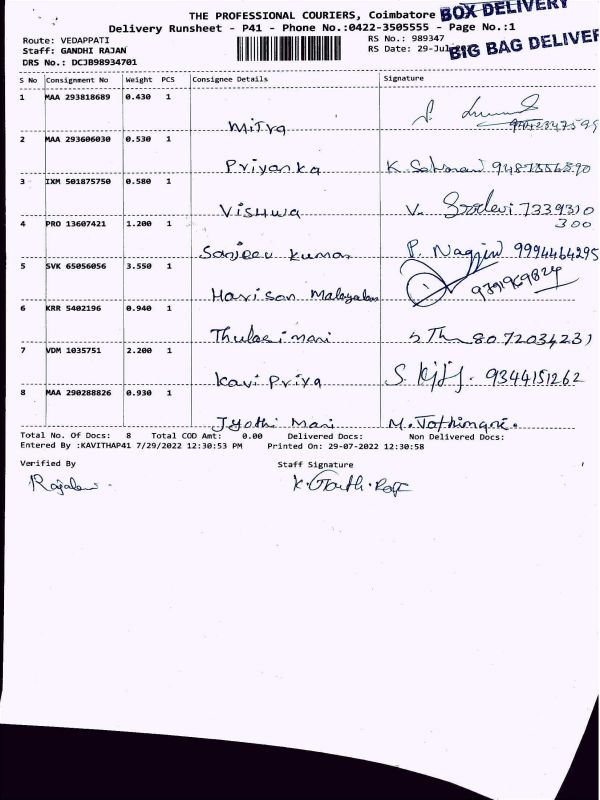 THE PROFESSIONAL COURIERS, Coimbatore BOX DELIVERY
Delivery Runsheet - P41 - Phone No.:0422-3505555 - Page No.:1
Route: VEDAPPATI RS No.: 989347
Staff: GANDHI RAJAN RS Date: 29-Jul BIG BAG DELIVER
DRS No.: DCJB98934701
S No Consignment No Weight PCS Consignee Details Signature
1 MAA 293818689 0.430 1
Mitra
2 MAA 293606030 0.530 1
Priyanka K.
3 IXM 501875750 0.580 1
Vishwa V. 7339310
300
4 PRO 13607421 1.200 1
Sanjeev kumar P. 9994464295
5 SVK 65056056 3.550 1
Harison Malayalam
6 KRR 5402196 0.940 1
Thulasimani 8072034231
7 VDM 1035751 2.200 1
Kavi Priya S. 9344151262
8 MAA 290288826 0.930 1
Jyothi Mani M. Jothimani.
Total No. Of Docs: 8 Total COD Amt: 0.00 Delivered Docs: Non Delivered Docs:
Entered By :KAVITHAP41 7/29/2022 12:30:53 PM Printed On: 29-07-2022 12:30:58
Verified By Staff Signature